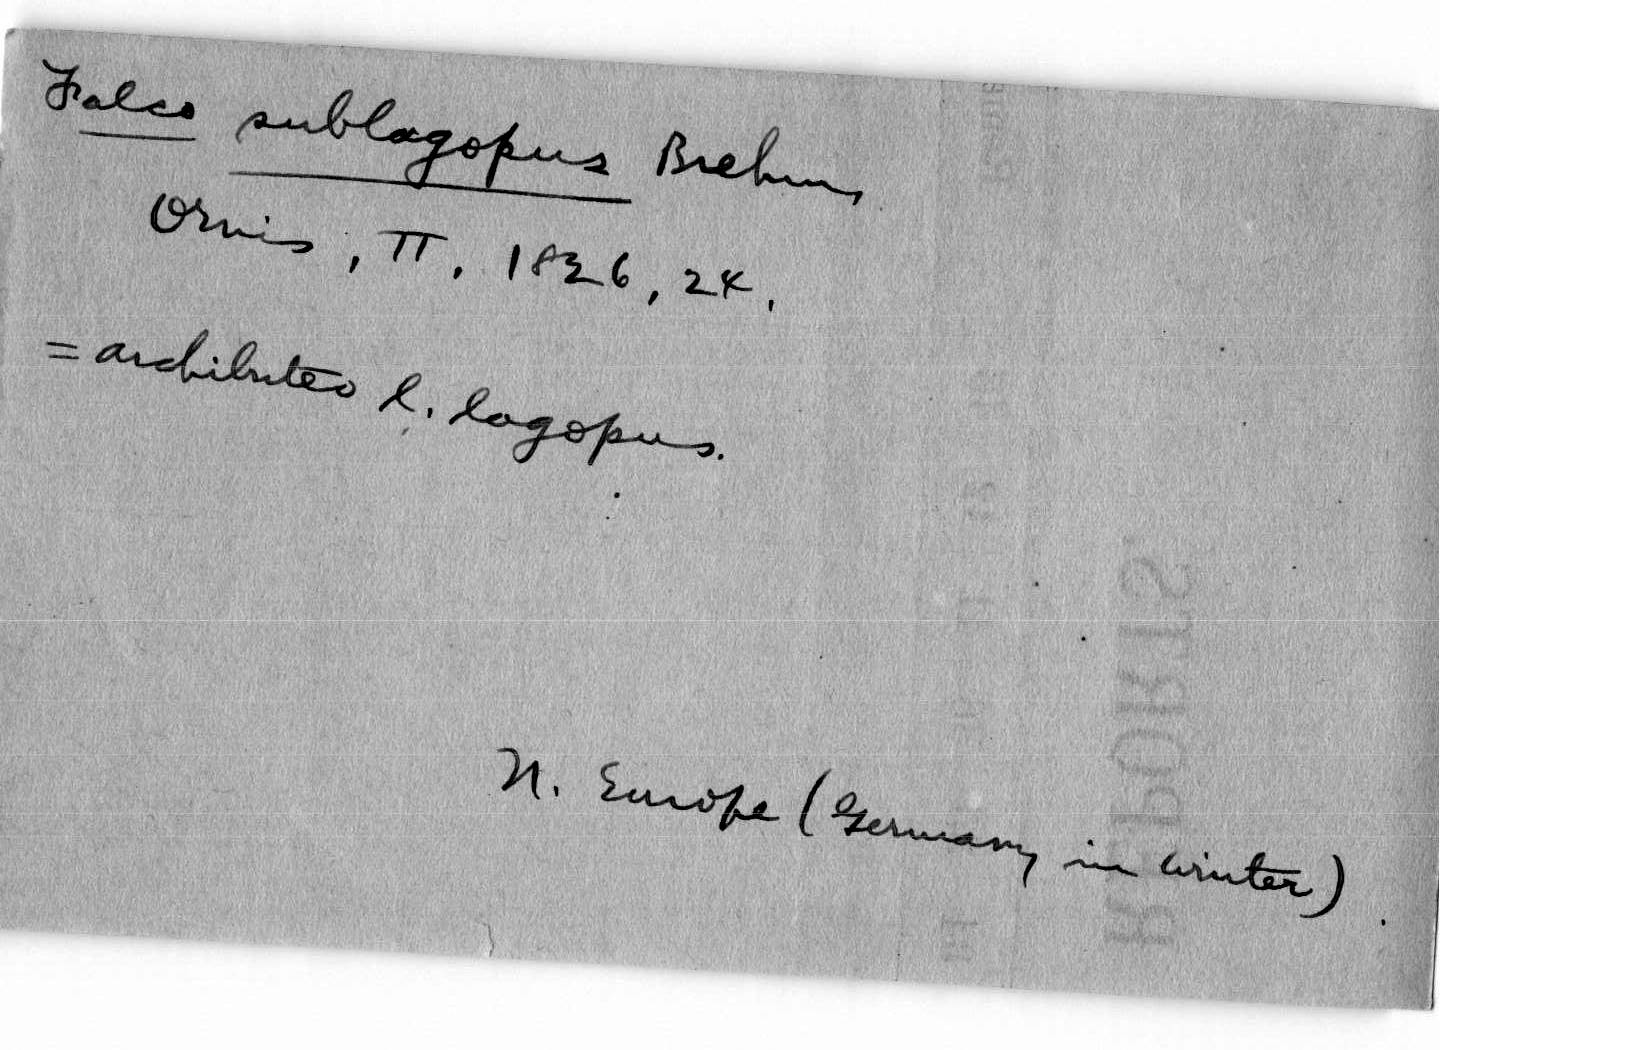 Falco sublagopus Brehm,
Ornis, II, 1826, 24.
= archibuteo l. lagopus.
N. Europe (Germany in winter).
REPORTS